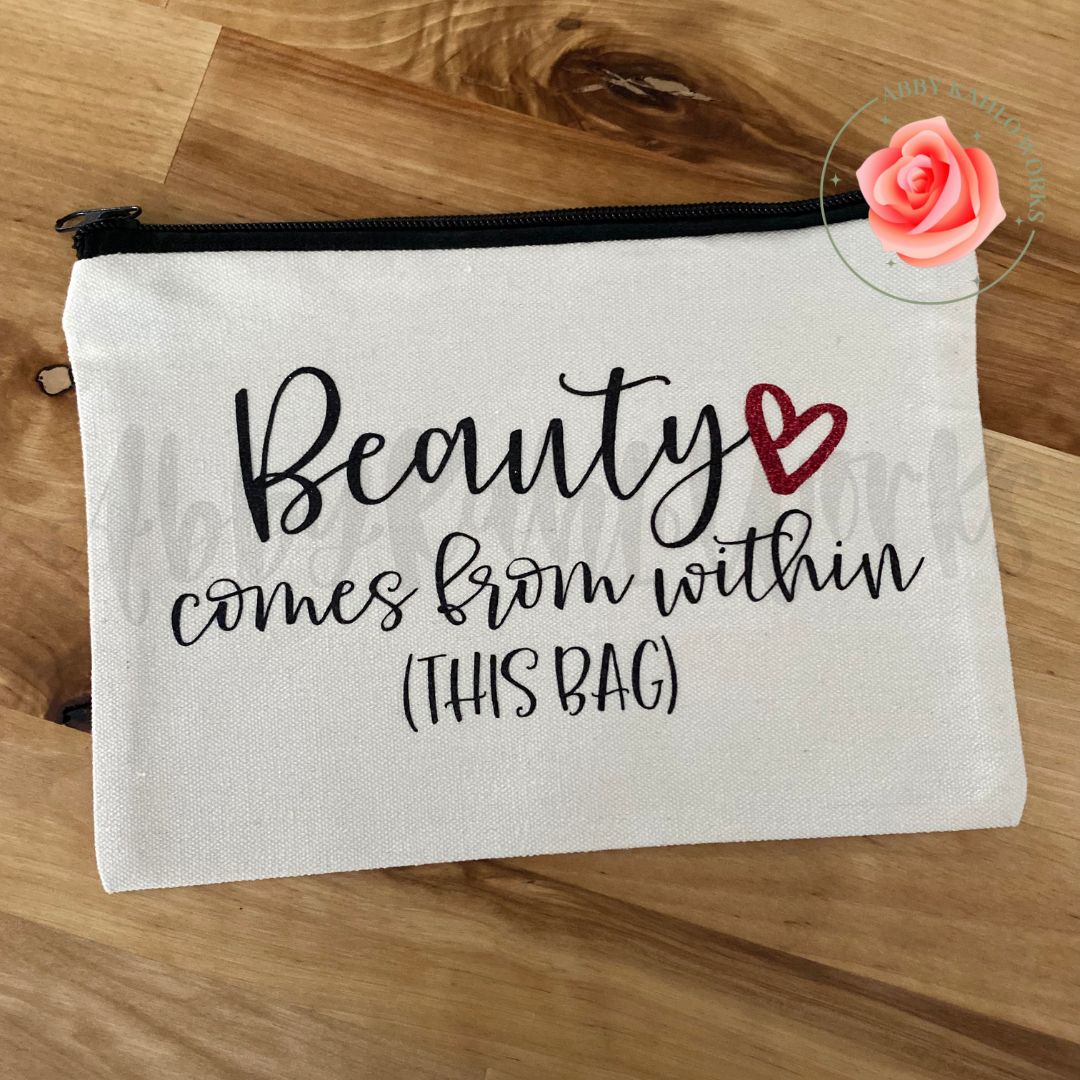 ABBY KAHLO WORKS
Beauty
comes from within
(THIS BAG)
Abby Kahlo Works